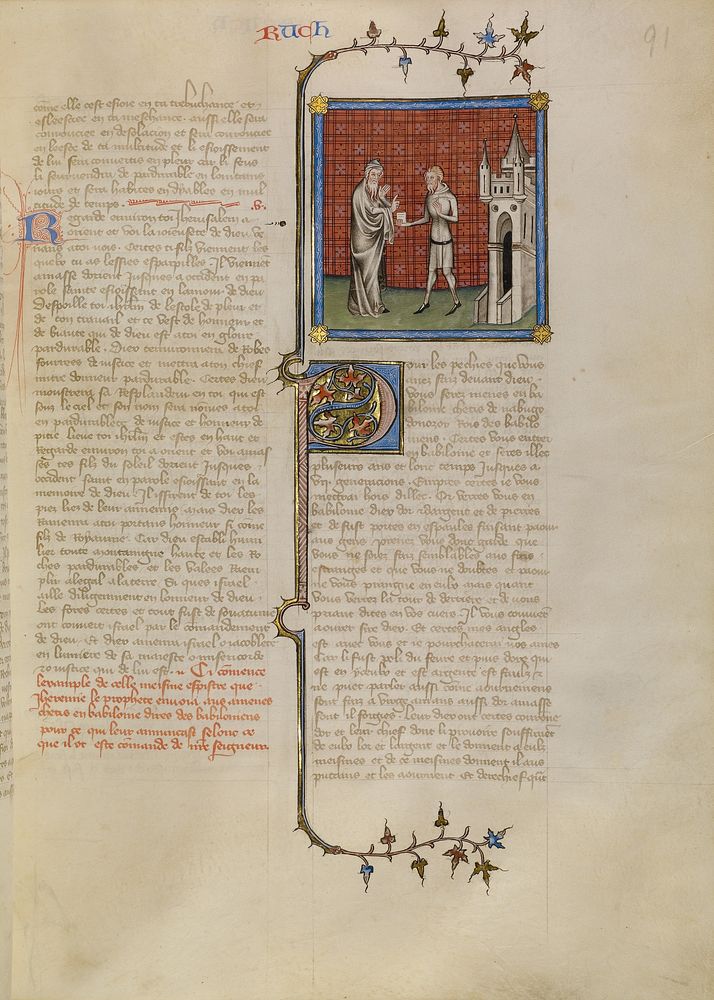 RUCH
91
come elle cest esioie en ta trebuchance et
esleescee en ta meschance aussi elle sera
courouciee en desolacion et sera
en leesce de sa multitude et li esioissement
de lui sera convertis en pleur car li feus
li seurvendra de pardurable en
iours et sera habites en dyables en mul
titude de temps. .v.
Regarde environ toy Jherusalem a
orient et voi la joieuseté de dieu ve
nans a toi nous. Certes ti filz viennent les
quels tu as lessies esparpillies. Il viennent
amasse dorient jusques a occident en pa
role sainte esioissent en lamour de dieu
Despoille toi jhrlm de lestole de pleur et
de ton travail et te vest de honneur et
de biaute qui de dieu est a toi en gloire
pardurable. Diex te environnera de robes
fourrees de justice et mettra a ton chief
mitre donneur pardurable. Certes dieu
monsterra sa resplandeur en toi qui est
souz le ciel et son nom sera nomes a toi
en pardurablete de justice et honneur de
pitie lieve toi jhrlm et estes en haut et
Regarde environ toi a orient et voi amas
ses tes filz du soleil dorient jusques
occident saint en parole esioissant en la
memoire de dieu. Il issirent de toi les
piez liez de leur annemis mais diex les
Ramenra a toi portans honneur si come
filz de Royaume. Car dieu establi humi
lier toute montaingne haute et les Ro
ches pardurables et les valees Raem
plir a legal a la terre. Si ques israel
aille diligenment en lonneur de dieu.
Les fores certes et tout fust de souatume
ont couvert israel par le comandement
de dieu. Et diex amenra israel
en lumiere de sa maieste o misericorde
et o justice qui de lui est. Ci comence
lexample de celle meisme epistre que
Jheremie le prophete envoia aus amenes
chetis en babiloine dires des babiloniens
pour ce qui leur annuncast selonc ce
que il est este comande de nostre seigneur.
Pour les pechies que vous
avez faiz devant dieu
vous serez menes en ba
biloine chetis de nabugo
donozor Rois des babilo
niens. Certes vous enterr
en babiloine et seres illec
plusieurs ans et lonc temps jusques a
vii. generacions. Empres certes je vous
mettrai hors dillec. Or verres vous en
babiloine diex dor dargent et de pierres
et de fust portes en espaules faisant paour
aus gens prenez vous donc garde que
vous ne soiez faiz semblables aus fais
estranges et que vous ne doubtes et paour
ne vous prangne en eulx mais quant
vous verrez la tour de derriere et de vous
priant dites en vos cuers. Il vous convient
aourer sire dieu. Et certes mes angles
est avec vous et je pourchaceray vos ames
Car li fust poli du fevre et puis dorez qui
est en yceulx et est argente est faulz et
ne puet parler aussi come aournemens
sont faiz a vierge amans aussi dor amasse
sont il forgies. Leur diex ont certes couronne
dor et leur chief dont li provoire soustraient
de eulx lor et largent et le donnent a eulz
meismes et de ce meismes donnent il aus
putains et les aournent. Et derechief quant